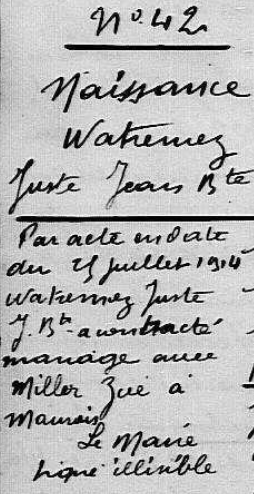 No. 42
Naissance
Watremez
Juste Jean Bte
Par acte en date
du 25 juillet 1914
Watremez Juste
J. Bte a contracté
mariage avec
Miller Zoé à
Maurois
Le Maire
signé illisible